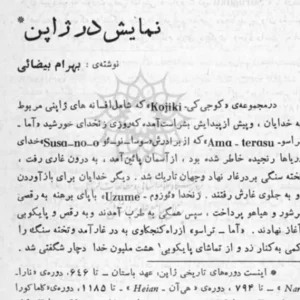 نمایش در ژاپن *
نوشته‌ی : بهرام بیضائی
در مجموعه‌ی «کوجی‌کی- Kojiki» که شامل افسانه های ژاپنی مربوط
به خدایان ، و پیش از پیدایش بشر است آمده که روزی زنخدای خورشید «آما ـ
تراسو- Ama - terasu» که از برادرش «سوسا-نو-او Susa-no-o» خدای
دریاها رنجیده خاطر شده بود ، از آسمان پائین آمد . و درون غاری رفت ،
تخته سنگی بر در غار نهاد و جهان تاریک شد . دیگر خدایان برای باز آوردن
به جلوی غارش رفتند . زنخدا «اوزومه- Uzume» با پای برهنه به رقصی
پرشور و هیاهو پرداخت ، سپس همگی به طرب آمدند و به رقص و پایکوبی
آغاز نهادند . «آما ـ تراسو» از راه کنجکاوی به در آمد و تخته سنگ را
کمی به کنار زد و از تماشای پایکوبی هشت ملیون خدا دچار شگفتی شد .
* اینست دوره‌های تاریخی ژاپن: عهد باستان ـ تا ۶۴۶، دوره‌ی «نارا-
Na ـ تا ۷۹۴، دوره‌ی «هی‌آن - Heian» ـ تا ۱۱۸۵، دوره‌ی «کاماکورا